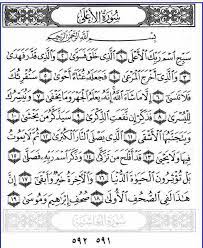 سُورَةُ الأَعْلَى
بِسْمِ اللَّهِ الرَّحْمَٰنِ الرَّحِيمِ
سَبِّحِ اسْمَ رَبِّكَ الْأَعْلَى ١ الَّذِي خَلَقَ فَسَوَّىٰ ٢ وَالَّذِي قَدَّرَ فَهَدَىٰ
٣ وَالَّذِي أَخْرَجَ الْمَرْعَىٰ ٤ فَجَعَلَهُ غُثَاءً أَحْوَىٰ ٥ سَنُقْرِئُكَ
فَلَا تَنسَىٰ ٦ إِلَّا مَا شَاءَ اللَّهُ إِنَّهُ يَعْلَمُ الْجَهْرَ وَمَا يَخْفَىٰ ٧ وَنُيَسِّرُكَ
لِلْيُسْرَىٰ ٨ فَذَكِّرْ إِن نَّفَعَتِ الذِّكْرَىٰ ٩ سَيَذَّكَّرُ مَن يَخْشَىٰ ١٠
وَيَتَجَنَّبُهَا الْأَشْقَى ١١ الَّذِي يَصْلَى النَّارَ الْكُبْرَىٰ ١٢ ثُمَّ لَا يَمُوتُ
فِيهَا وَلَا يَحْيَىٰ ١٣ قَدْ أَفْلَحَ مَن تَزَكَّىٰ ١٤ وَذَكَرَ اسْمَ رَبِّهِ فَصَلَّىٰ ١٥
بَلْ تُؤْثِرُونَ الْحَيَاةَ الدُّنْيَا ١٦ وَالْآخِرَةُ خَيْرٌ وَأَبْقَىٰ ١٧ إِنَّ
هَٰذَا لَفِي الصُّحُفِ الْأُولَىٰ ١٨ صُحُفِ إِبْرَاهِيمَ وَمُوسَىٰ ١٩
٥٩١ ٥٩٢